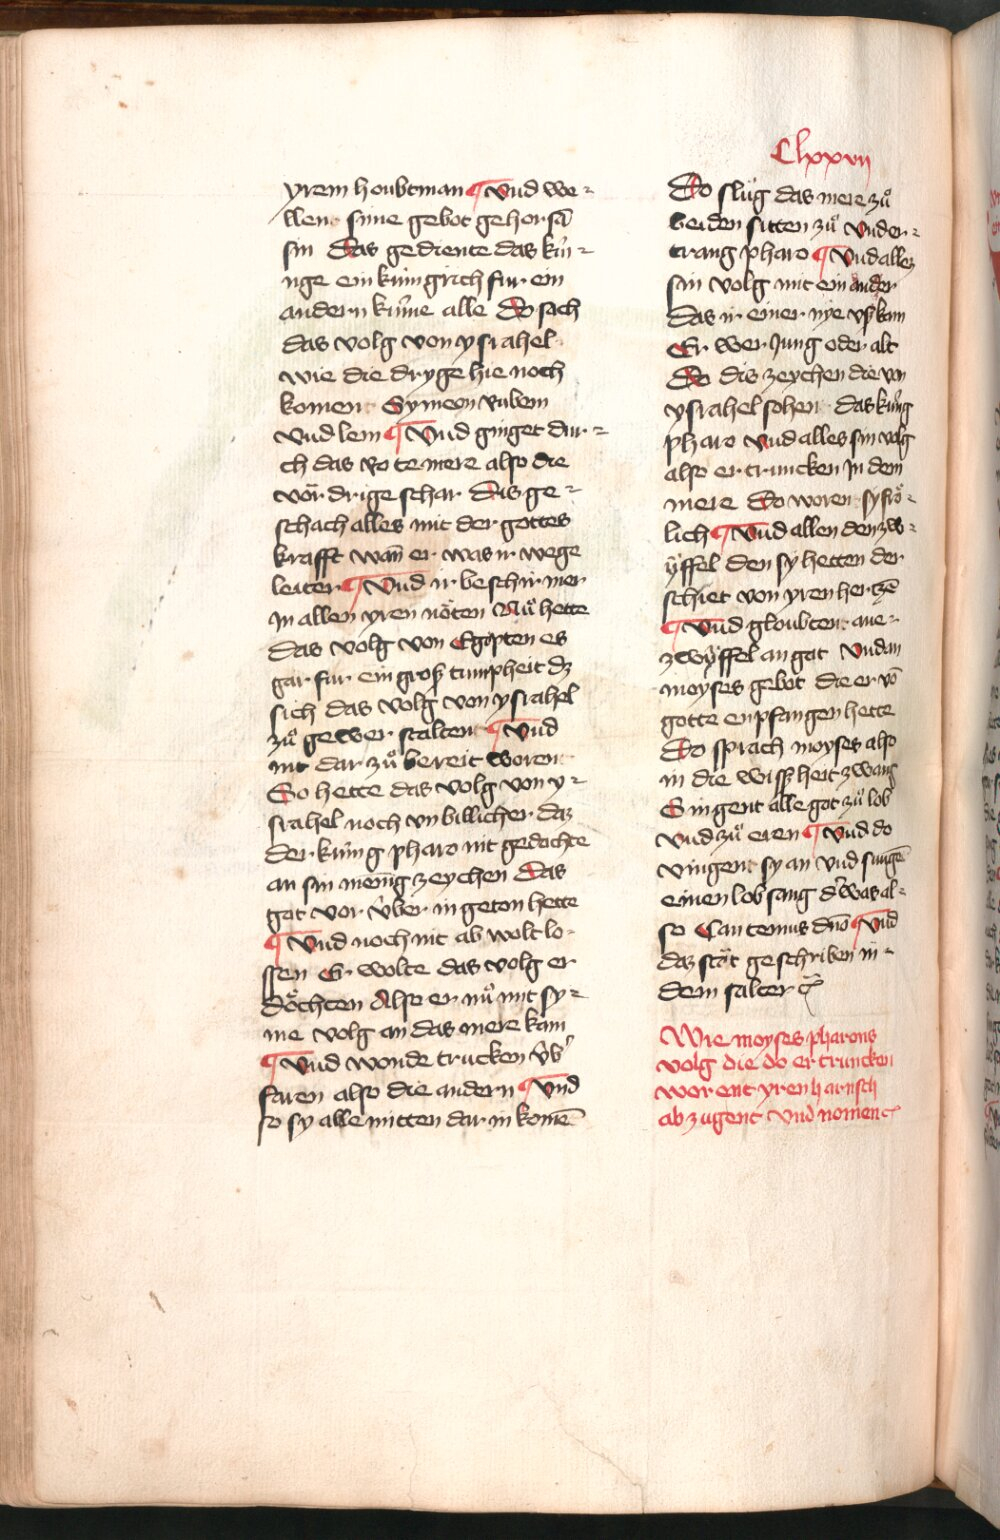 Clxxvii
yrem houbtman ¶ Vnd we-
llent sinne gebot gehorsā
sin Das gediente das kún-
nge ein kúnngrich fur ein
andern kúnne alle Do sach
das volg von ysrahel
wie die dryge hie noch
koment Symeon Rubem
vnd lem ¶ Vnd ginget dur-
ch das rote mere also die
vor drige schar Dis ge-
schach alles mit der gottes
krafft wañ er was ir wege
leiter ¶ Vnd ir beschirmer
In allen yren nöten Nů hette
das volg von Egipten es
gar fur ein groß tumpheit dz
sich das volg von ysrahel
zů gewer stalten ¶ Vnd
nit dar zů bereit worent
So hette das volg von y-
srahel noch vnbillicher daz
der kúnig pharo nit gedochte
an sin menig zeychen Das
got vor v́ber in geton hette
¶ Vnd noch nit ab wolt lo-
ssen Er wolte das volg er
döchten Also er nů mit sy-
me volg an das mere kam
¶ Vnd wonde trucken v́b'
faren also die andern ¶ Vnd
so sy alle mitten dar in komē
Do slůg das mere zů
beiden sitten zů vnder-
trang pharo ¶ Vnd allez
sin volg mit ein ander
Das ir einer nye vßkam
Er wer Jung oder alt
Do dis zeychen die von
ysrahel sohent das kúng
pharo vnd alles sin volg
also ertruncken In dem
mere Do worent sy frö-
lich ¶ Vnd allen den zw-
ÿffel den sy hetten der
schiet von yren hertzē
¶ Vnd gloubtent ane
zwÿffel an got Vnd an
moyses gebot die er vō
gotte enpfangen hette
Do sprach moyses also
in die wißheit zwang
Singent alle got zů lob
vnd zů eren ¶ Vnd do
vingent sy an vnd sungē
einen lobsang d' was al-
so Cantemus dño ¶ Vnd
daz stät geschriben in
dem salter
Wie moyses pharons
volg die do ertruncken
worent yren harnsch
ab zugent vnd noment